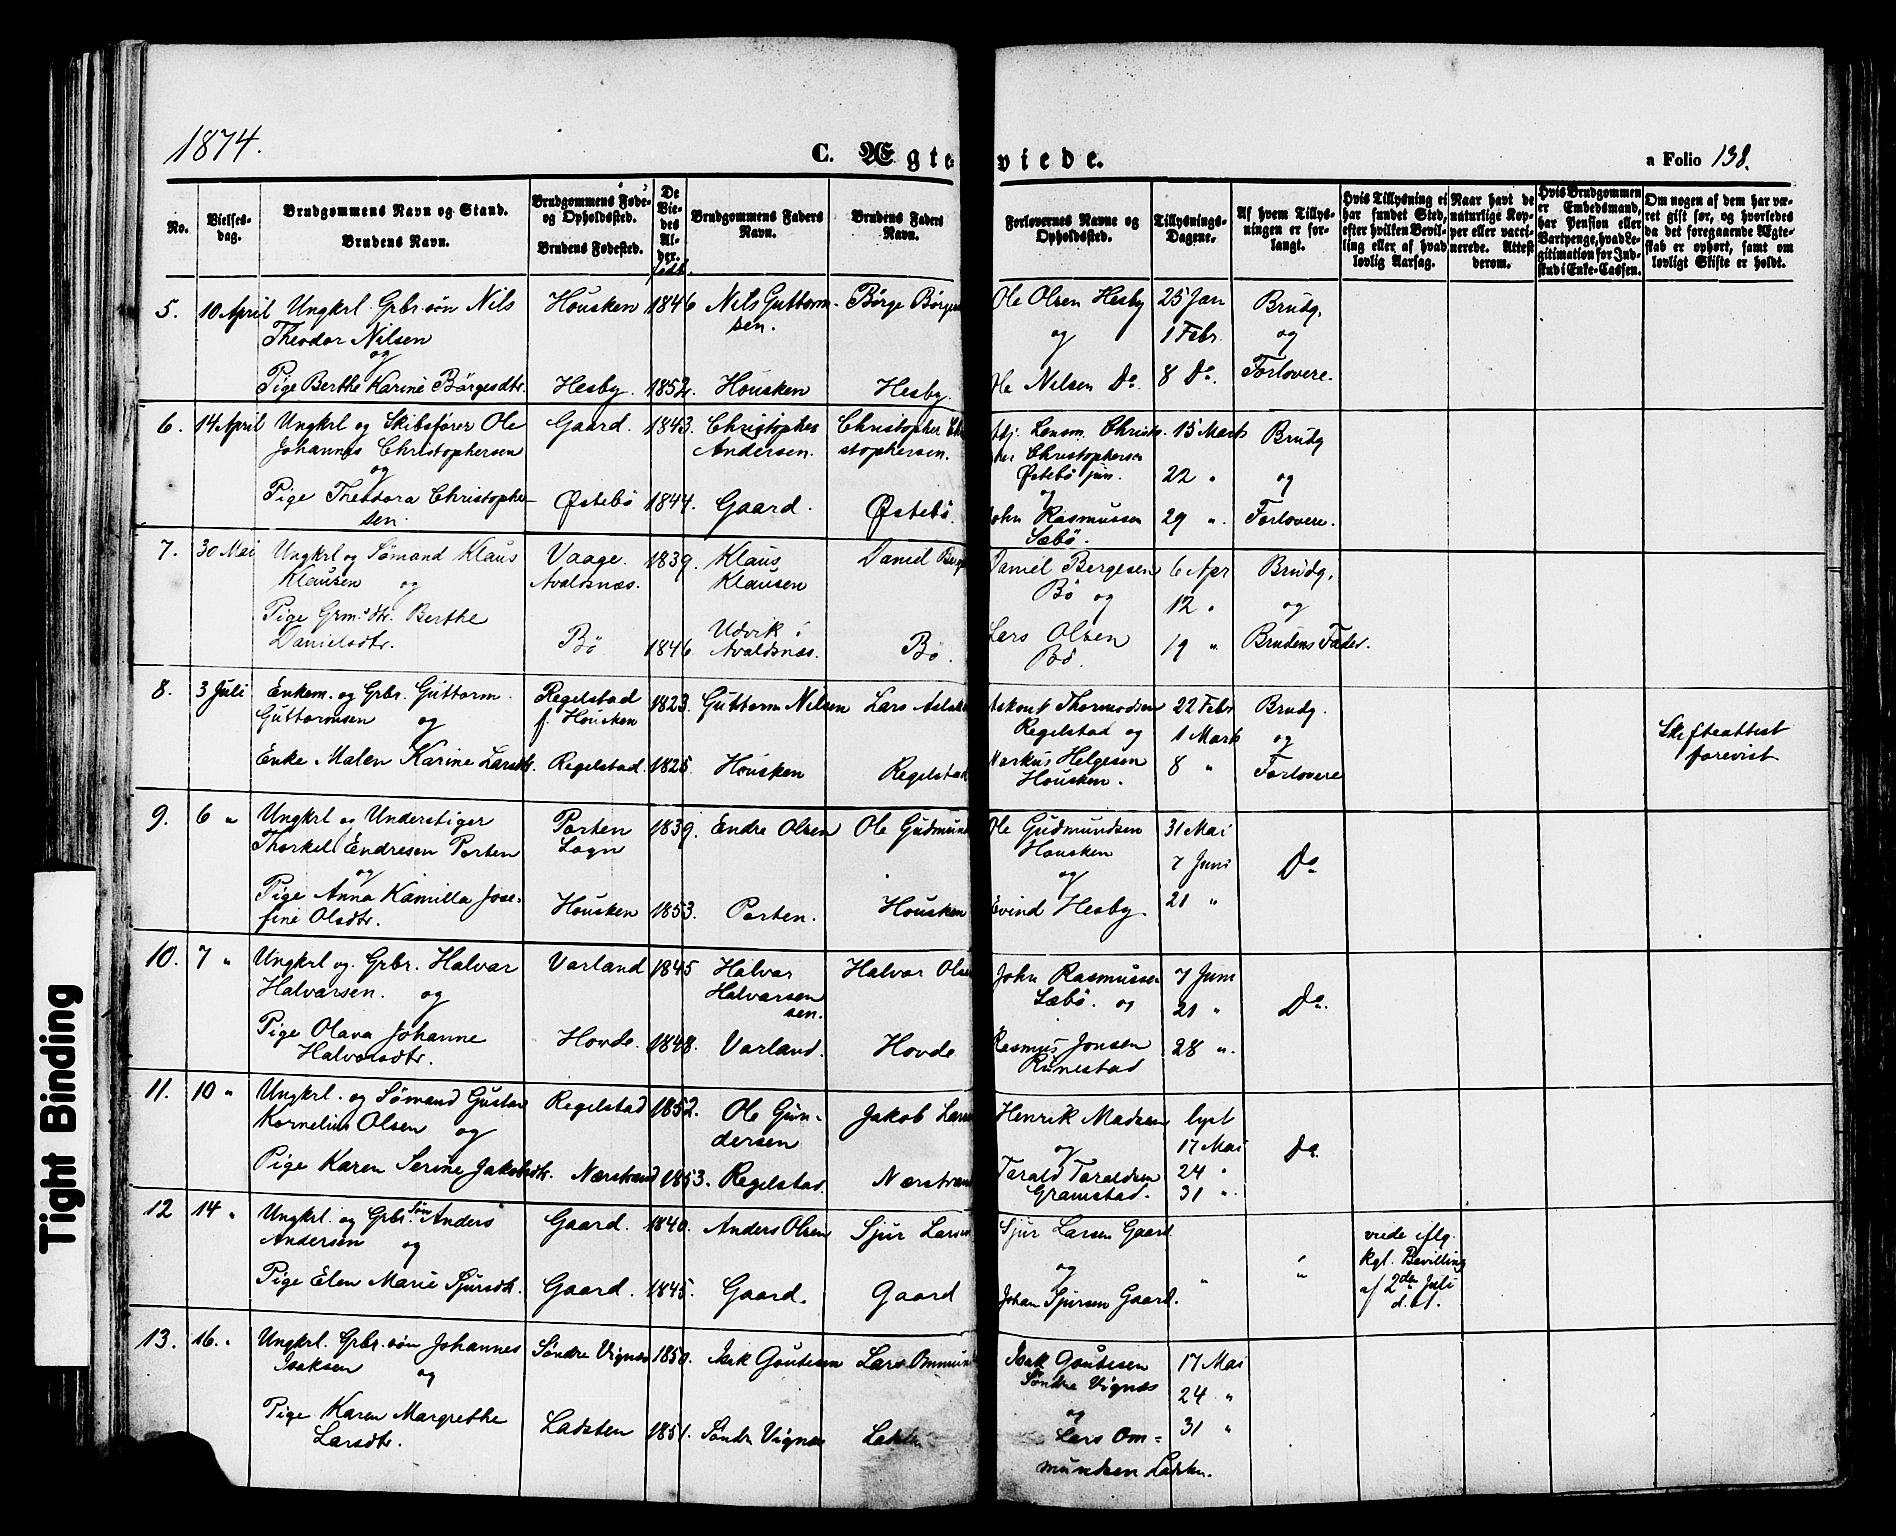 1874.
C. Ægteviede.
a Folio 138.
No.
Vielses-dag.
Brudgommens Navn og Stand.
Brudens Navn.
Brudgommens Føde- og Opholdssted.
Brudens Fødested.
De Viedes Alder.
født.
Brudgommens Faders Navn.
Brudens Faders Navn.
Forlovernes Navne og Opholdssted.
Tillysnings-Dagene.
Af hvem Tillysningen er forlangt.
Hvis Tillysning ei har fundet Sted, efter hvilken Bevilling eller af hvad lovlig Aarsag.
Naar havt de naturlige Kopper eller vaccinerede. Attest derom.
Hvis Brudgommen er Embedsmand, har Pension eller Vartpenge, hvad Legitimation for Indskud i Enke-Cassen.
Om nogen af dem har været gift før, og hvorledes da det foregaaende Ægteskab er ophørt, samt om lovligt Skifte er holdt.
5. 10 April Ungkrl. Grbr. søn Nils Housken 1846 Nils Guttorm- Børge Børges Ole Olsen Hesby 25 Jan Brudg.
Theodor Nilsen sen. og 1 Febr. og
og
Pige Berthe Karine Børgesdtr. Hesby. 1852. Housken Hesby. Ole Nilsen Do. 8 Do. Forlovere.
6. 14 April Ungkrl og Skibsfører Ole Gaard. 1843. Christopher Christopher Chri Adj. Lensm. Christo- 15 Marts Brudg
Johannes Christophersen Andersen. stophersen. pher Christophersen
og Østebø jun. 22 " og
Pige Theodora Christopher- Østebø 1844. Gaard. Østebø. og
sen. John Rasmussen 29 " Forlovere.
Sæbø.
7. 30 Mai Ungkrl og Sømand Klaus Vaage. 1839. Klaus Daniel Berge Daniel Bergesen 6 Apr Brudg.
Klausen og Avaldsnæs. Klausen Bø og 12 " og
Pige Grm. dtr. Berthe Udvik i
Danielsdtr. Bø 1846 Avaldsnæs. Bø. Lars Olsen 19 " Brudens Fader.
Bø.
8. 3 Juli Enkem. og Grbr. Guttorm Regelstad 1823. Guttorm Nilsen Lars Aslak Askout Thormodsen 22 Febr Brudg.
Guttormsen og f. Housken Regelstad og 1 Marts og Skifteattest
Enke Malen Karine Larsdtr. Regelstad. 1825 Housken Regelstad Markus Helgesen 8 " Forlovere forevist
Housken.
9. 6 " Ungkrl og Understiger Porten 1839. Endre Olsen Ole Gudmund Ole Gudmundsen 31 Mai
Thorkel Endresen Porten Sogn Housken 7 Juni Do
og og
Pige Anna Kamilla Jose- Housken 1853. Porten. Housken Eivind Hesby. 21 "
fine Olsdtr.
10. 7 " Ungkrl og. Grbr. Halvar Varland 1845 Halvar Halvor Olse John Rasmussen 7 Juni
Halvarsen. og Halvarsen Sæbø. og 21 " Do.
sen.
Pige Olava Johanne Hovde. 1848. Varland. Hovde Rasmus Jonsen 28 "
Halvorsdtr. Runestad
11. 10 " Ungkrl. og Sømand Gustav Regelstad 1852. Ole Gun- Jakob Larse Henrik Madsen lyst
Kornelius Olsen og dersen og 17 Mai Do.
Pige Karen Serine Jakobsdtr. Nærstrand 1853. Regelstad. Nærstrand Tarald Taraldsen 24 "
Gramstad. 31 "
12 14 " Ungkrl. og Grbr. Søn Anders Gaard. 1840. Anders Olsen Sjur Larsen Sjur Larsen Gaard viede iflg.
Andersen og og " " kgl. Bevilling
Pige Elen Marie Sjursdtr. Gaard. 1845. Gaard. Gaard Johan Sjursen Gaard. af 2den Juli
d. A.
13. 16. " Ungkrl. Grbr. søn Johannes Søndre Vignæs 1850. Isak Goutesen Lars Ommund Isak Goutesen 17 Mai
Isaksen og Søndre Vignæs 24 "
og
Pige Karen Margrethe Ladsten 1851. Søndre Vignæs Ladsten Lars Om- 31 "
Larsdtr. mundsen Ladsten.
Tight Binding